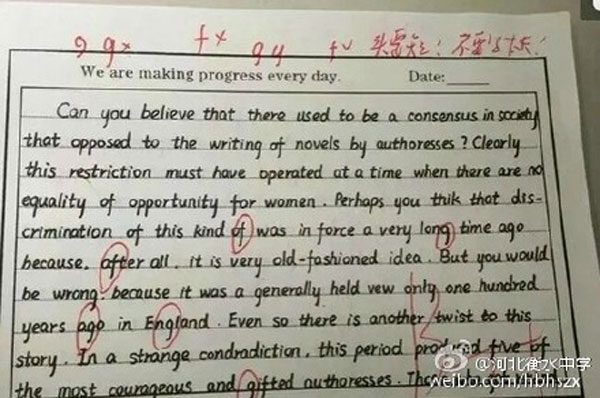 g gx fx gy fv
We are making progress every day. Date:
Can you believe that there used to be a consensus in society
that opposed to the writing of novels by authoresses? Clearly
this restriction must have operated at a time when there are no
equality of opportunity for women. Perhaps you thik that dis-
crimination of this kind of was in force a very long time ago
because, after all, it is very old-fashioned idea. But you would
be wrong. because it was a generally held vew only one hundred
years ago in England. Even so there is another twist to this
story. In a strange condradiction, this period five of
the most courageous and gifted authoresses.
@河北衡水中学
weibo.com/hbhszx